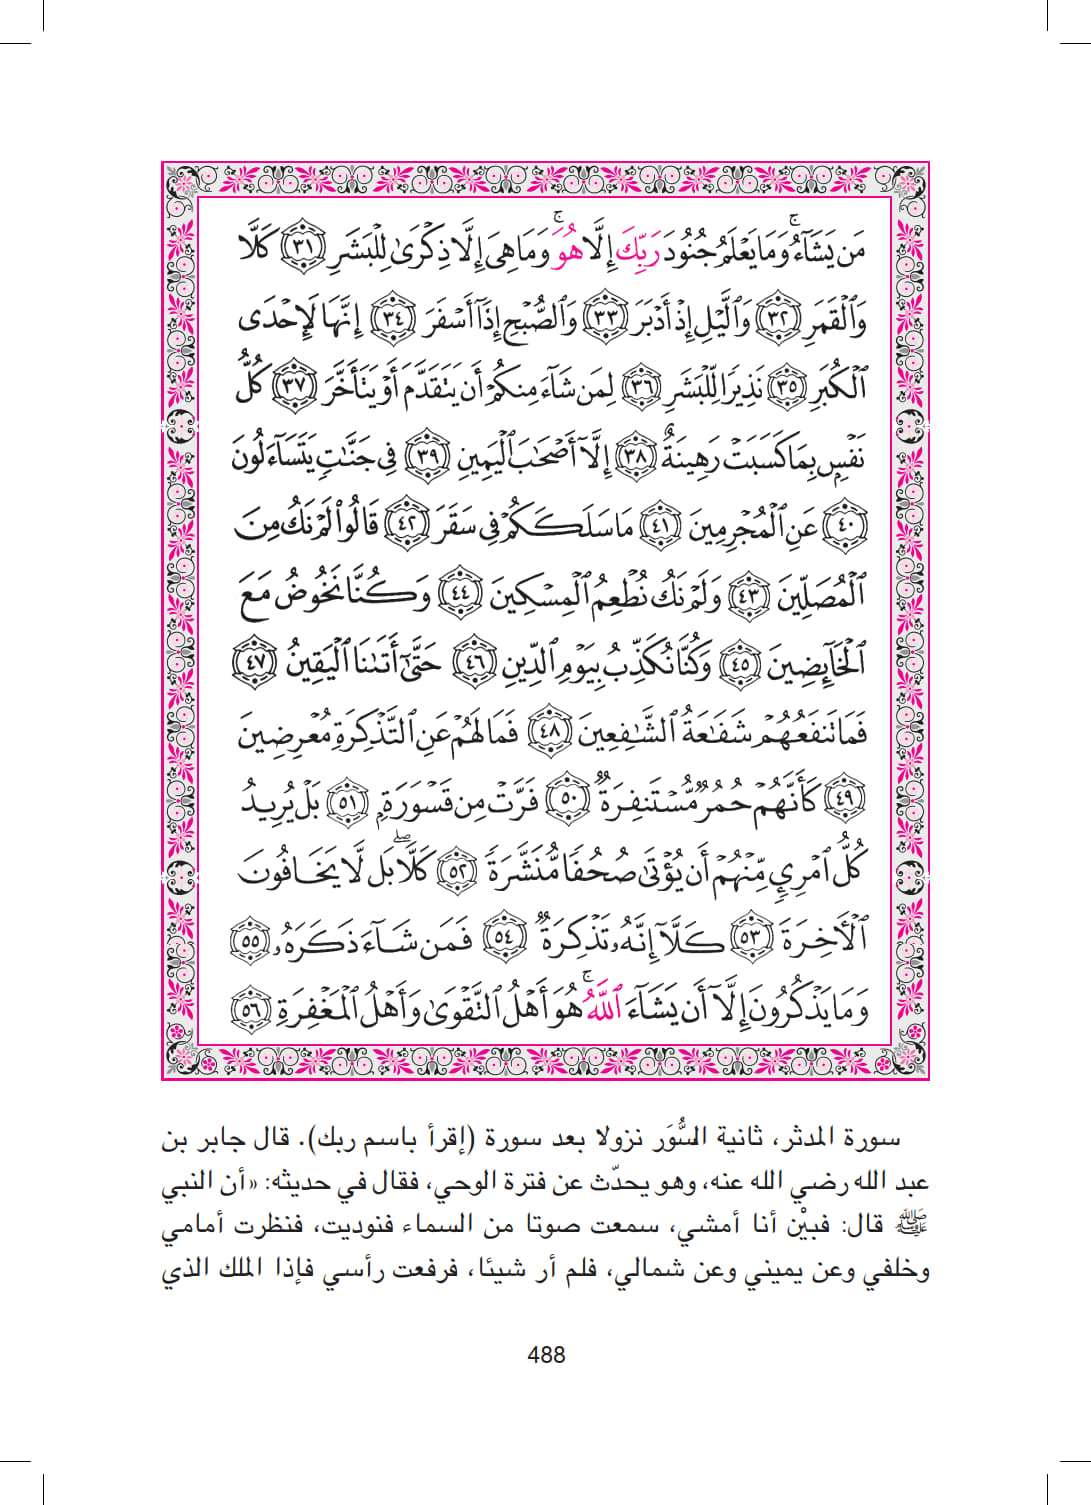 مَن يَشَآءُۚ وَمَا يَعْلَمُ جُنُودَ رَبِّكَ إِلَّا هُوَۚ وَمَا هِىَ إِلَّا ذِكْرَىٰ لِلْبَشَرِ ٣١ كَلَّا
وَٱلْقَمَرِ ٣٢ وَٱلَّيْلِ إِذْ أَدْبَرَ ٣٣ وَٱلصُّبْحِ إِذَآ أَسْفَرَ ٣٤ إِنَّهَا لَإِحْدَى
ٱلْكُبَرِ ٣٥ نَذِيرًا لِّلْبَشَرِ ٣٦ لِمَن شَآءَ مِنكُمْ أَن يَتَقَدَّمَ أَوْ يَتَأَخَّرَ ٣٧ كُلُّ
نَفْسٍۭ بِمَا كَسَبَتْ رَهِينَةٌ ٣٨ إِلَّآ أَصْحَٰبَ ٱلْيَمِينِ ٣٩ فِى جَنَّٰتٍ يَتَسَآءَلُونَ
٤٠ عَنِ ٱلْمُجْرِمِينَ ٤١ مَا سَلَكَكُمْ فِى سَقَرَ ٤٢ قَالُوا۟ لَمْ نَكُ مِنَ
ٱلْمُصَلِّينَ ٤٣ وَلَمْ نَكُ نُطْعِمُ ٱلْمِسْكِينَ ٤٤ وَكُنَّا نَخُوضُ مَعَ
ٱلْخَآئِضِينَ ٤٥ وَكُنَّا نُكَذِّبُ بِيَوْمِ ٱلدِّينِ ٤٦ حَتَّىٰٓ أَتَىٰنَا ٱلْيَقِينُ ٤٧
فَمَا تَنفَعُهُمْ شَفَٰعَةُ ٱلشَّٰفِعِينَ ٤٨ فَمَا لَهُمْ عَنِ ٱلتَّذْكِرَةِ مُعْرِضِينَ
٤٩ كَأَنَّهُمْ حُمُرٌ مُّسْتَنفِرَةٌ ٥٠ فَرَّتْ مِن قَسْوَرَةٍۭ ٥١ بَلْ يُرِيدُ
كُلُّ ٱمْرِئٍ مِّنْهُمْ أَن يُؤْتَىٰ صُحُفًا مُّنَشَّرَةً ٥٢ كَلَّاۖ بَل لَّا يَخَافُونَ
ٱلْءَاخِرَةَ ٥٣ كَلَّآ إِنَّهُۥ تَذْكِرَةٌ ٥٤ فَمَن شَآءَ ذَكَرَهُۥ ٥٥
وَمَا يَذْكُرُونَ إِلَّآ أَن يَشَآءَ ٱللَّهُۚ هُوَ أَهْلُ ٱلتَّقْوَىٰ وَأَهْلُ ٱلْمَغْفِرَةِ ٥٦
سورة المدثر، ثانية السُّوَر نزولا بعد سورة (إقرأ باسم ربك). قال جابر بن
عبد الله رضي الله عنه، وهو يحدّث عن فترة الوحي، فقال في حديثه: «أن النبي
ﷺ قال: فبيْن أنا أمشي، سمعت صوتا من السماء فنوديت، فنظرت أمامي
وخلفي وعن يميني وعن شمالي، فلم أر شيئا، فرفعت رأسي فإذا الملك الذي
488